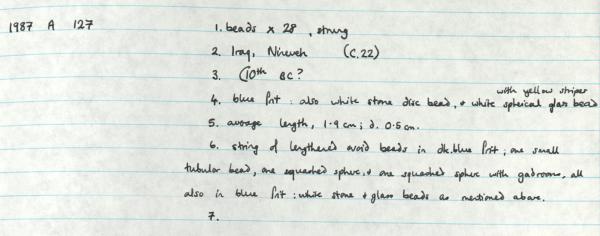 1987 A 127
1. beads x 28, strung
2. Iraq, Nineveh (C.22)
3. C10th BC?
with yellow stripes
4. blue frit: also white stone disc bead, + white spherical glass bead
5. average length, 1.9cm; d. 0.5cm.
6. string of lengthened ovoid beads in dk. blue frit; one small
tubular bead, one squashed sphere, + one squashed sphere with gadroons, all
also in blue frit: white stone + glass beads as mentioned above.
7.